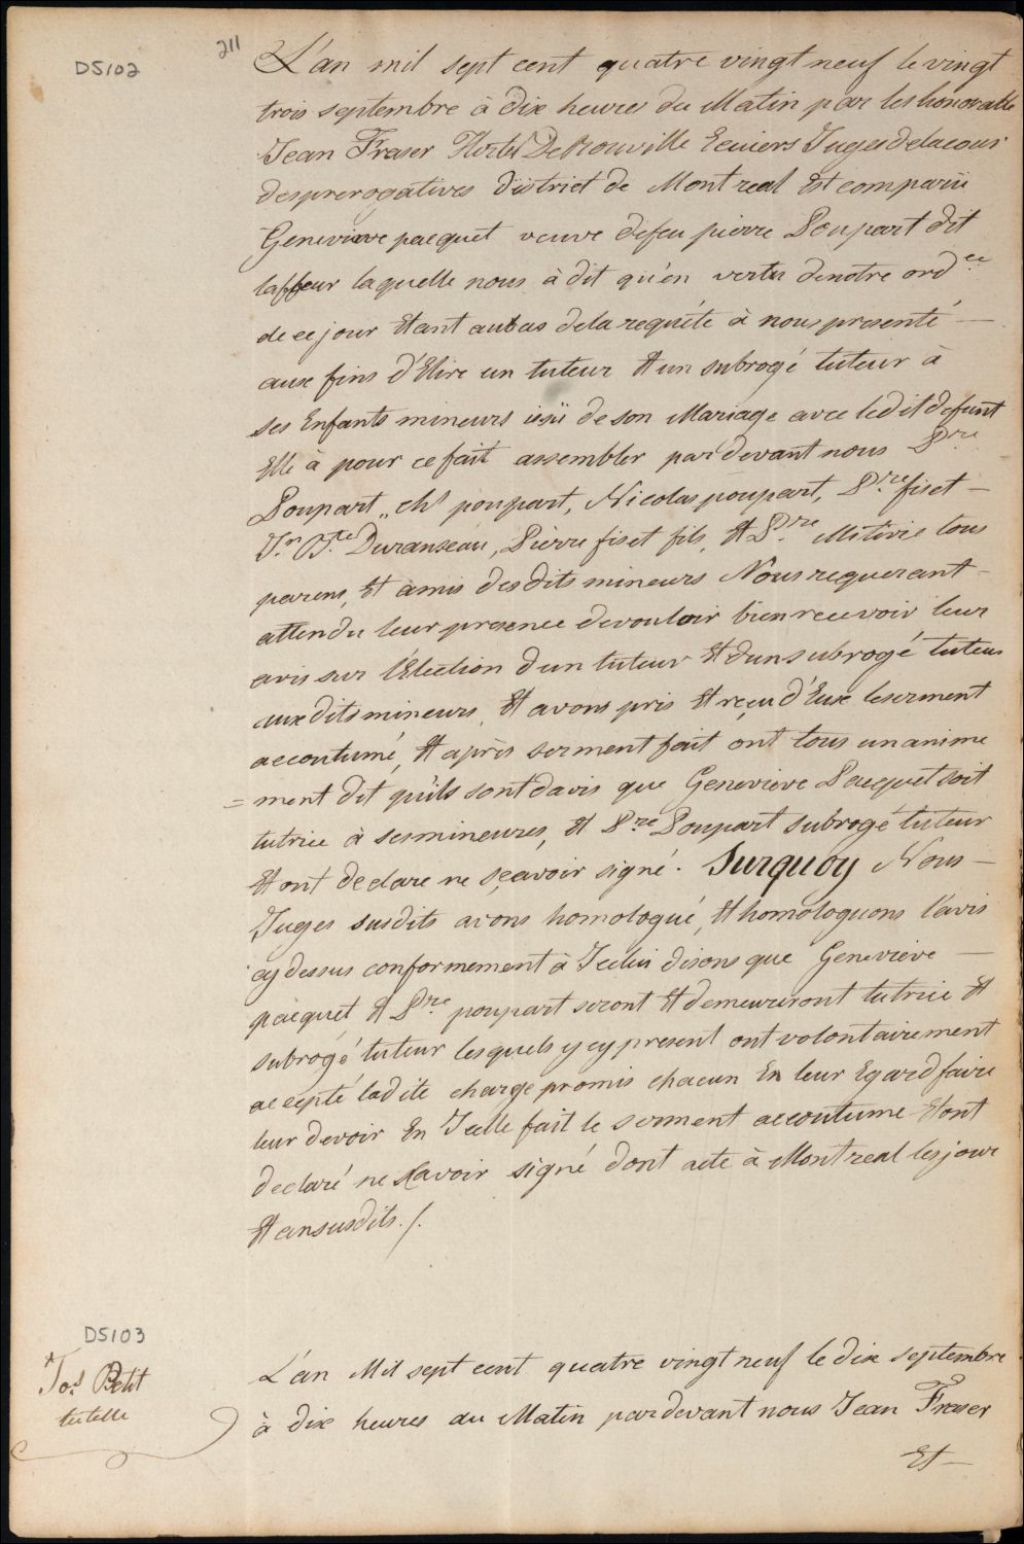 D5102
211
L'an mil sept cent quatre vingt neuf le vingt
trois septembre à dix heures du Matin par les honorable
Jean Fraser Hertel De Rouville Ecuiers Juges de la cour
des prerogatives district de Montreal Est comparüe
Genevieve pacquet veuve defeu pierre Poupart dit
laffleur laquelle nous à dit qu'en vertu denotre ord.ce
de ce jour Etant au bas dela requête à nous presenté —
aux fins d'Elire un tuteur Et un subrogé tuteur à
ses Enfants mineurs issü de son Mariage avec ledit defunt
Elle à pour ce fait assembler par devant nous P.re
Poupart,, ch.s poupart, Nicolas poupart, P.re fiset —
J.n B.te Duranseau, Pierre fiset fils, Et P.re Mitivié tous
parens, Et amis desdits mineurs Nous requerant —
attendu leur presence devouloir bien recevoir leur
avis sur l'Election dun tuteur Et dun subrogé tuteur
aux dits mineurs, Et avons pris Et reçu d'Eux le serment
accoutumé, Et après serment fait ont tous unanime
= ment dit qu'ils sont davis que Genevieve Pacquet soit
tutrice à ses mineures, Et P.re Poupart subrogé tuteur
Et ont declare ne sçavoir signé. Surquoy Nous —
Juges susdits avons homologué, Et homologuons l'avis
cy dessus conformement à Icelui disons que Genevieve —
pacquet Et P.re poupart seront Et demeureront tutrice Et
subrogé tuteur lesquels y cy present ont volontairement
accepté ladite charge promis chacun En leur Egard faire
leur devoir En Icelle fait le serment accoutume Et ont
declaré ne savoir signé dont acte à Montreal les jour
Et an susdits ./.
D5103
Jos. Petit
tutelle
L'an Mil sept cent quatre vingt neuf le dix septembre
à dix heures du Matin par devant nous Jean Fraser
Et —